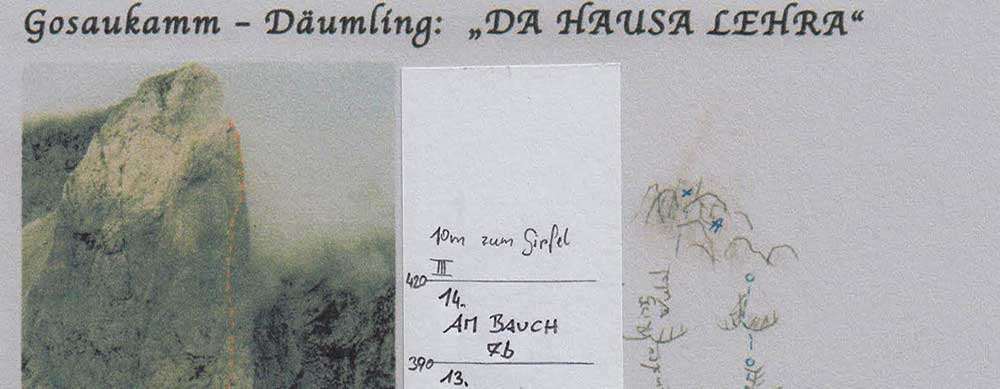 Gosaukamm – Däumling: „DA HAUSA LEHRA“
10m zum Gipfel
III
420
14.
AM BAUCH
7b
390
13.